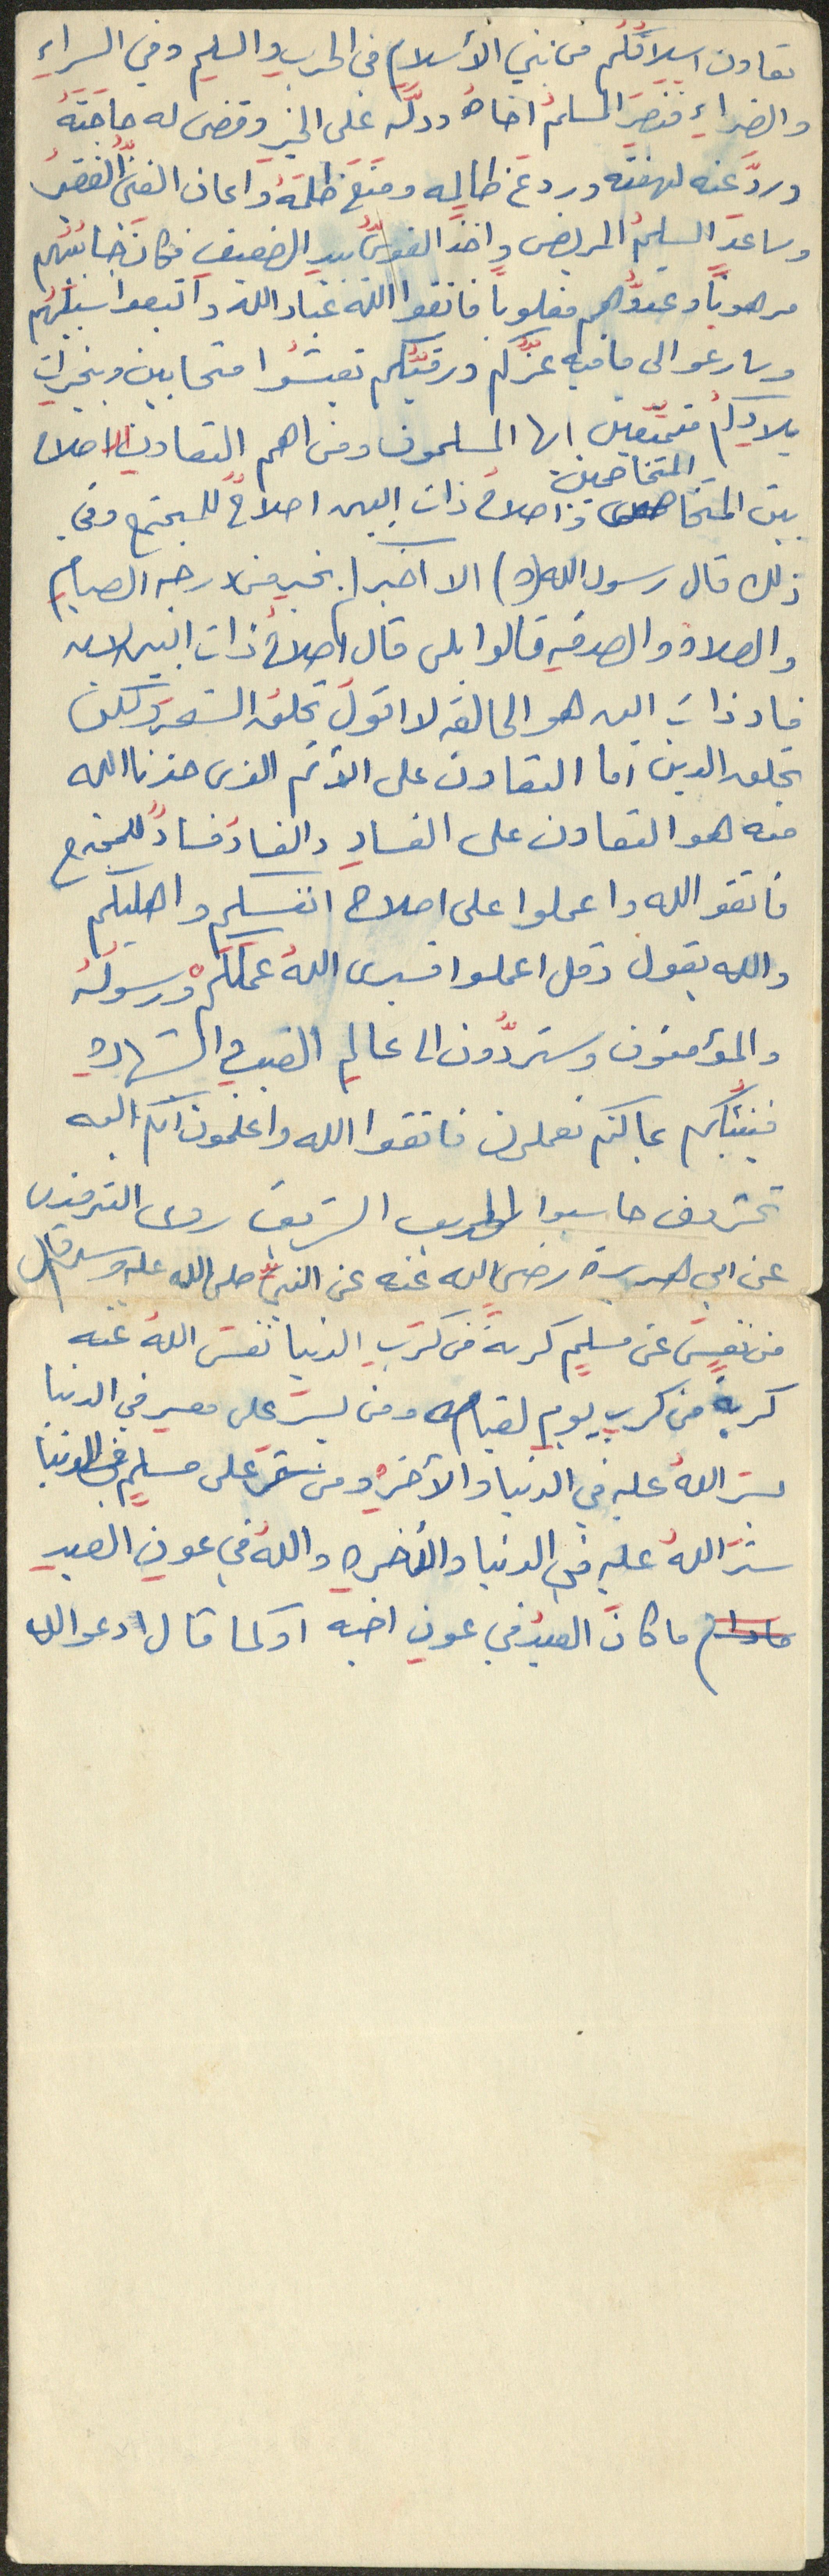 تعاون اسلافُكُم من بني الأسلام في الحرب والسلمِ وفي السراءِ
والضراءِ فنصرَ المسلمُ اخاهُ ودلَّه على الخيرِ وقضى له حاجَتَهُ
وردَّ عنه لهفته وردعَ ظالمه ومنعَ ظلمَهُ واعان الغنىُّ الفقيرَ
وساعدَ السليمُ المريضَ واخذَ القوىُّ بيدِ الضعيفِ فكانَ جانبُهُم
مرهوباً وعدوُّهم مغلوباً فاتقوا اللهَ عبادَ اللهَ واتبعوا سبيلَهُم
وسارعوا الى ما فيه عزُّكم ورقيُّكم تعيشُوا متحابين وبخيراتِ
بلادِكُم متمتِّعين ايها المسلمون ومن اهم التعاونِ الاصلاحُ
بين المتخاصمين واصلاحُ ذات البين اصلاحٌ للمجتمع وفي
ذلك قال رسول الله (ص) الا اخبركم بخير من درجه الصيامِ
والصلاة والصدقهِ قالوا بلى قال اصلاحُ ذات البين لان
فساد ذات البين هو الحالقه لا اقولُ تحلقُ الشعرَ ولكن
تحلق الدين اما التعاون على الأثم الذى حذرنا الله
منه هو التعاون على الفسادِ والفسادُ فسادٌ للمجتمع
فاتقو الله واعملوا على اصلاح انفسكم واهليكم
والله يقول وقل اعملوا فسيرى اللهُ عملَكُم ورسولُهُ
والمؤمنون وستردُّون الى عالمِ الغيبِ والشهادهِ
فينبئُكم بما كنتم تعملون فاتقوا الله واعلمون انكم اليه
تحشرون حاسبوا الحديث الشريف روى الترمذى
عن ابي هريرة رضىَ الله عنه عن النبيِّ صلى الله عليه وسلم قال
من نفسَ عن مسلمٍ كربةً من كربِ الدنيا نفسَ اللهُ عنه
كربةً من كربِ يومِ القيامه ومن يسرَ على معسرٍ في الدنيا
يسرَ اللهُ عليه في الدنيا والأخرهِ ومن سترَ على مسلمٍ في الدنيا
سترَ اللهُ عليه في الدنيا والأخرهِ واللهُ في عونِ العبدِ
مادام ما كانَ العبدُ في عونِ اخيه او كما قال ادعوا الله